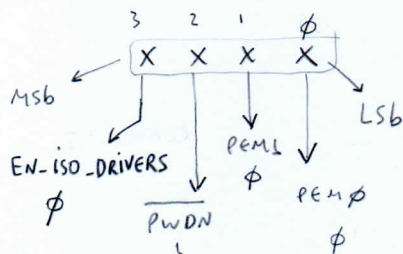 3 2 1 φ
X X X X
MSb
LSb
EN_ISO_DRIVERS
φ
PWDN
1
PEM1
φ
PEMφ
φ